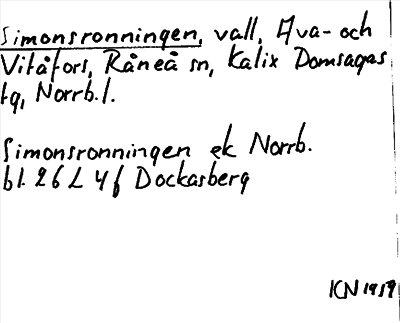 Simonsronningen, vall, Ava- och
Vitåfors, Råneå sn, Kalix Domsagas
tg, Norrb.l.
Simonsronningen ek Norrb.
bl. 26 L 4f Dockasberg
KN 1959